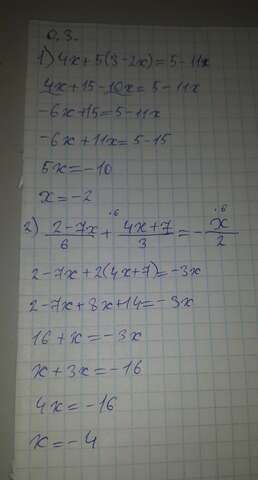 0.3.
1) 4x+5(3-2x)=5-11x
4x+15-10x=5-11x
-6x+15=5-11x
-6x+11x=5-15
5x=-10
x=-2
2) (2-7x)/6 + (4x+7)/3 = -x/2
2-7x+2(4x+7)=-3x
2-7x+8x+14=-3x
16+x=-3x
x+3x=-16
4x=-16
x=-4